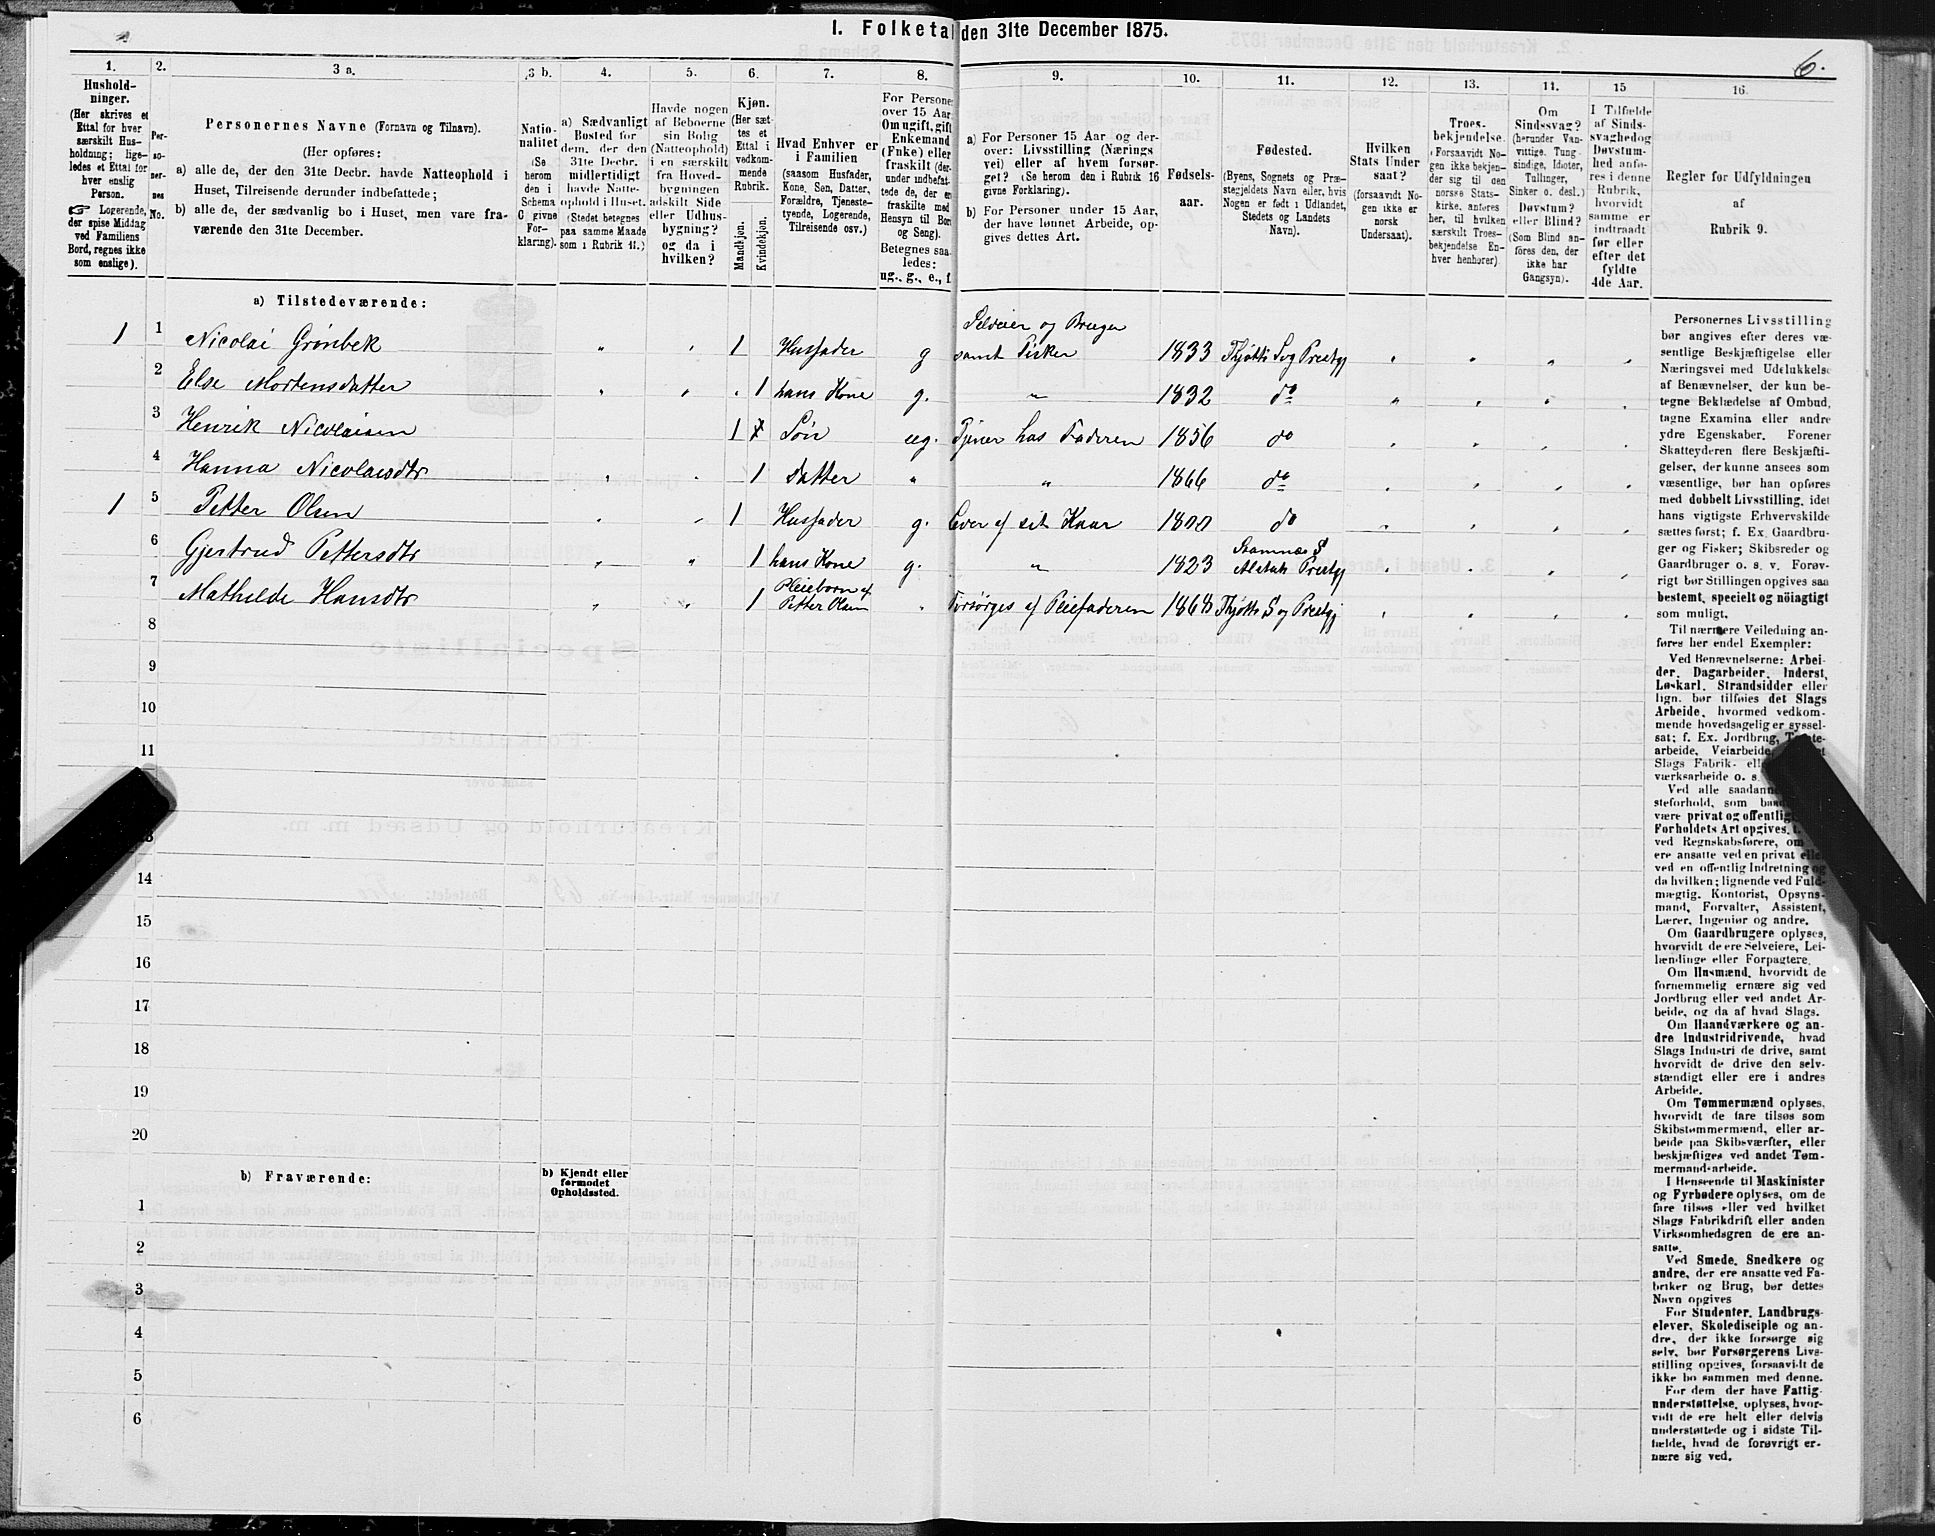 I. Folketal den 31te December 1875.
6.
1.
Hushold-
ninger.
(Her skrives et
Ettal for hver
særskilt Hus-
holdning; lige-
ledes et Ettal for
hver enslig
Person.
Logerende,
der spise Middag
ved Familiens
Bord, regnes ikke
som enslige).
2.
Per-
so-
ner-
nes
No.
3 a.
Personernes Navne (Fornavn og Tilnavn).
(Her opføres:
a) alle de, der den 31te Decbr. havde Natteophold i
Huset, Tilreisende derunder indbefattede;
b) alle de, der sædvanlig bo i Huset, men vare fra-
værende den 31te December.
3 b.
Natio-
nalitet
(Se
herom
den i
Schema
C givne
For-
klaring).
4.
a) Sædvanligt
Bosted for
dem, der den
31te Decbr.
midlertidigt
havde Natte-
ophold i Huset.
(Stedet betegnes
paa samme Maade
som i Rubrik 11.)
5.
Havde nogen
af Beboerne
sin Bolig
(Natteophold)
i en særskilt
fra Hoved-
bygningen
adskilt Side
eller Udhus-
bygning?
og da i
hvilken?
6.
Kjøn.
(Her sæt-
tes et
Ettal i
vedkom-
mende
Rubrik.
Mandkjøn.
Kvindekjøn.
7.
Hvad Enhver er
i Familien
(saasom Husfader,
Kone, Søn, Datter,
Forældre, Tjeneste-
tyende, Logerende,
Tilreisende osv.)
8.
For Personer
over 15 Aar:
Om ugift, gift,
Enkemand
(Enke) eller
fraskilt (der-
under indbefat-
tede de, der er
fraskilte med
Hensyn til Bord
og Seng).
Betegnes saa-
ledes:
ug., g., e., f.
9.
a) For Personer 15 Aar og der-
over: Livsstilling (Nærings-
vei) eller af hvem forsør-
get? (Se herom den i Rubrik 16
givne Forklaring).
b) For Personer under 15 Aar,
der have lønnet Arbeide, op-
gives dettes Art.
10.
Fødsels-
aar.
11.
Fødested.
(Byens, Sognets og Præ-
stegjeldets Navn eller, hvis
Nogen er født i Udlandet,
Stedets og Landets
Navn).
12.
Hvilken
Stats Under-
saat?
(forsaavidt No-
gen ikke er
norsk
Undersaat).
13.
Troes-
bekjendelse.
(Forsaavidt No-
gen ikke bekjen-
der sig til den
norske Stats-
kirke, anføres
her, til hvilken
særskilt Troes-
bekjendelse En-
hver henhører).
14.
Om
Sindssvag?
(herunder Van-
vittige, Tung-
sindige, Idioter,
Tullinger,
Sinker o. desl.)
Døvstum?
eller Blind?
(Som Blind an-
føres den, der
ikke har
Gangsyn).
15
I Tilfælde
af Sinds-
svaghed og
Døvstum-
hed anfø-
res i denne
Rubrik,
hvorvidt
samme er
indtraadt
før eller
efter det
fyldte
4de Aar.
16.
Regler for Udfyldningen
af
Rubrik 9.
a) Tilstedeværende:
1 1 Nicolai Grönbek " " 1 Husfader g Selveier og Bruger samt Fisker 1833 Thjøttø S og Prestgj
2 Else Mortensdatter " " 1 hans Kone g. " 1832 do
3 Henrik Nicolaisen 1 Sön ug. Tjener hos Faderen 1856 do
4 Hanna Nicolaisdtr 1 Datter " " 1866 do
1 5 Petter Olsen 1 Husfader g. Lever af sit Kaar 1800 do
6 Gjertrud Pettersdtr " " 1 hans Kone g. " 1823 Stamnæs S Alstah Prestgj
7 Mathilde Hansdtr " " 1 Pleiebarn af Petter Olsen Forsörges af Pleiefaderen 1868 Thjøttø S og Prestgj
8
9
10
11
13
14
15
16
17
18
19
20
b) Fraværende:
b) Kjendt eller
formodet
Opholdssted.
1
2
3
4
5
6
Personernes Livsstilling
bør angives efter deres væ-
sentlige Beskjæftigelse eller
Næringsvei med Udelukkelse
af Benævnelser, der kun be-
tegne Beklædelse af Ombud,
tagne Examina eller andre
ydre Egenskaber. Forener
Skatteyderen flere Beskjæfti-
gelser, der kunne ansees som
væsentlige, bør han opføres
med dobbelt Livsstilling, idet
hans vigtigste Erhvervskilde
sættes først; f. Ex. Gaardbru-
ger og Fisker; Skibsreder og
Gaardbruger o. s. v. Forøv-
rigt bør Stillingen opgives saa
bestemt, specielt og nöiagtigt
som muligt.
Til nærmere Veiledning an-
føres her endel Exempler:
Ved Benævnelserne: Arbei-
der, Dagarbeider, Inderst,
Løskarl, Strandsidder eller
lign. bør tilføies det Slags
Arbeide, hvormed vedkom-
mende hovedsagelig er syssel-
sat; f. Ex. Jordbrug,
arbeide, Veiarbeide,
Slags Fabrik-
værksarbeide o. s.
Ved alle saadanne
steforhold, som
være privat og offentlig
Forholdets Art opgives,
ved Regnskabsførere, om
ere ansatte ved en privat eller
ved en offentlig Indretning og
da hvilken; lignende ved Fuld-
mægtig, Kontorist, Opsyns-
mand, Forvalter, Assistent,
Lærer, Ingeniør og andre.
Om Gaardbrugere oplyses,
hvorvidt de ere Selveiere, Lei-
lændinge eller Forpagtere.
Om Husmænd, hvorvidt de
fornemmelig ernære sig ved
Jordbrug eller ved andet Ar-
beide, og da af hvad Slags.
Om Haandværkere og an-
dre Industridrivende, hvad
Slags Industri de drive, samt
hvorvidt de drive den selv-
stændigt eller ere i andres
Arbeide.
Om Tømmermænd oplyses,
hvorvidt de fare tilsøs som
Skibstømmermænd, eller ar-
beide paa Skibsværfter, eller
beskjæftiges ved andet Tøm-
mermandsarbeide.
I Henseende til Maskinister
og Fyrbødere oplyses, om de
fare tilsøs eller ved hvilket
Slags Fabrikdrift eller anden
Virksomhedsgren de ere an-
satte.
Ved Smede, Snedkere og
andre, der ere ansatte ved Fa-
briker og Brug, bør dettes
Navn opgives
For Studenter, Landbrugs-
elever, Skoledisciple og an-
dre, der ikke forsørge sig
selv, bør Forsørgerens Livs-
stilling opgives, forsaavidt de
ikke bo sammen med denne.
For dem der have Fattig-
understøttelse, oplyses, hvor-
vidt de ere helt eller delvis
understøttede og i sidste Til-
fælde, hvad de forøvrigt er-
nære sig ved.